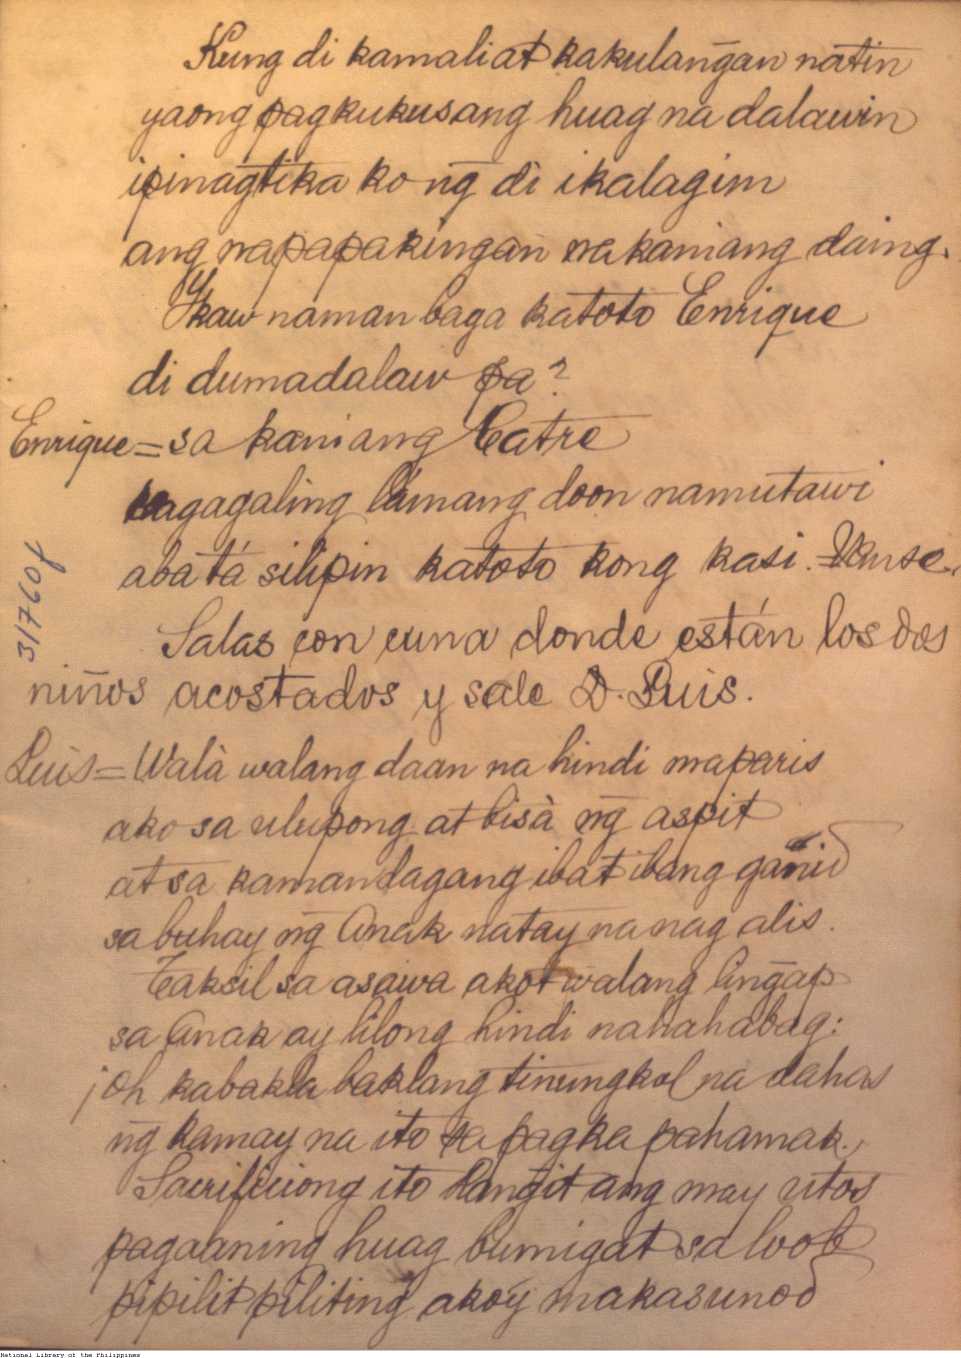 Kung di kamaliat kakulan̄gan natin
yaong pagkukusang huag na dalawin
ipinagtika ko n̄g di ikalagim
ang napapakingan na kaniang daing.
Ykaw naman baga katoto Enrique
di dumadalaw pa?
Enrique = sa kaniang Catre
nagagaling lamang doon namutawi
aba tá silipin katoto kong kasi. = Vanse.
Salas con cuna donde están los dos
niños acostados y sale D. Luis.
Luis = Walà walang daan na hindi maparis
ako sa ulupong at bisà n̄g aspit
at sa kamandagang ibat ibang ganid
sa buhay n̄g Anak natay na nag alis.
Taksil sa asawa akot walang lin̄gap
sa Anak ay lilong hindi nahahabag:
¡oh kabakla baklang tinungkol na dahas
n̄g kamay na ito sa pagka pahamak.
Sacrificiong ito langit ang may utos
pagaaning huag bumigat sa loob
pipilit piliting akoy makasunod
31760f
National Library of the Philippines